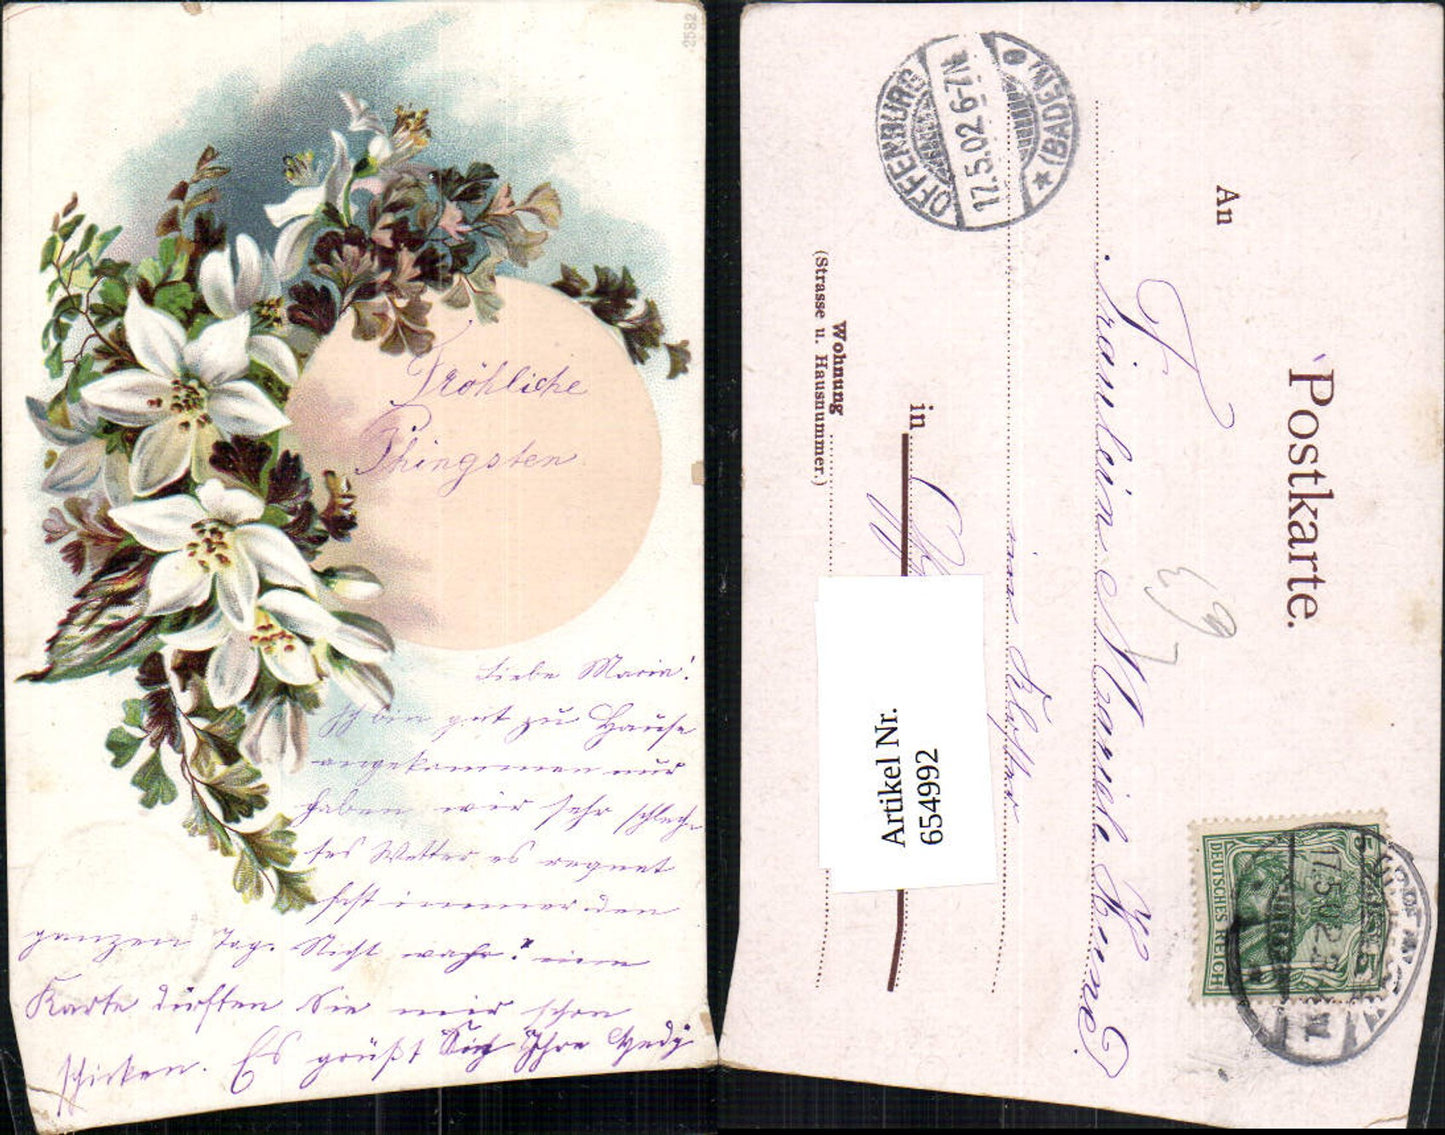 2582
Fröhliche
Phingsten
Liebe Maria!
Ich bin gut zu Hause
angekommen nur
haben wir sehr schlech
tes Wetter es regnet
fast immer den
ganzen Tag. Nicht wahr? eine
Karte dürften Sie mir schon
schicken. Es grüßt Sie Ihre Hedy
Postkarte.
An
Fräulein Marie
im Kloster
in
Wohnung
(Strasse u. Hausnummer.)
OFFENBURG
17.5.02.6-7N.
(BADEN)
DEUTSCHES REICH
17.5.02.2-3
Artikel Nr.
654992